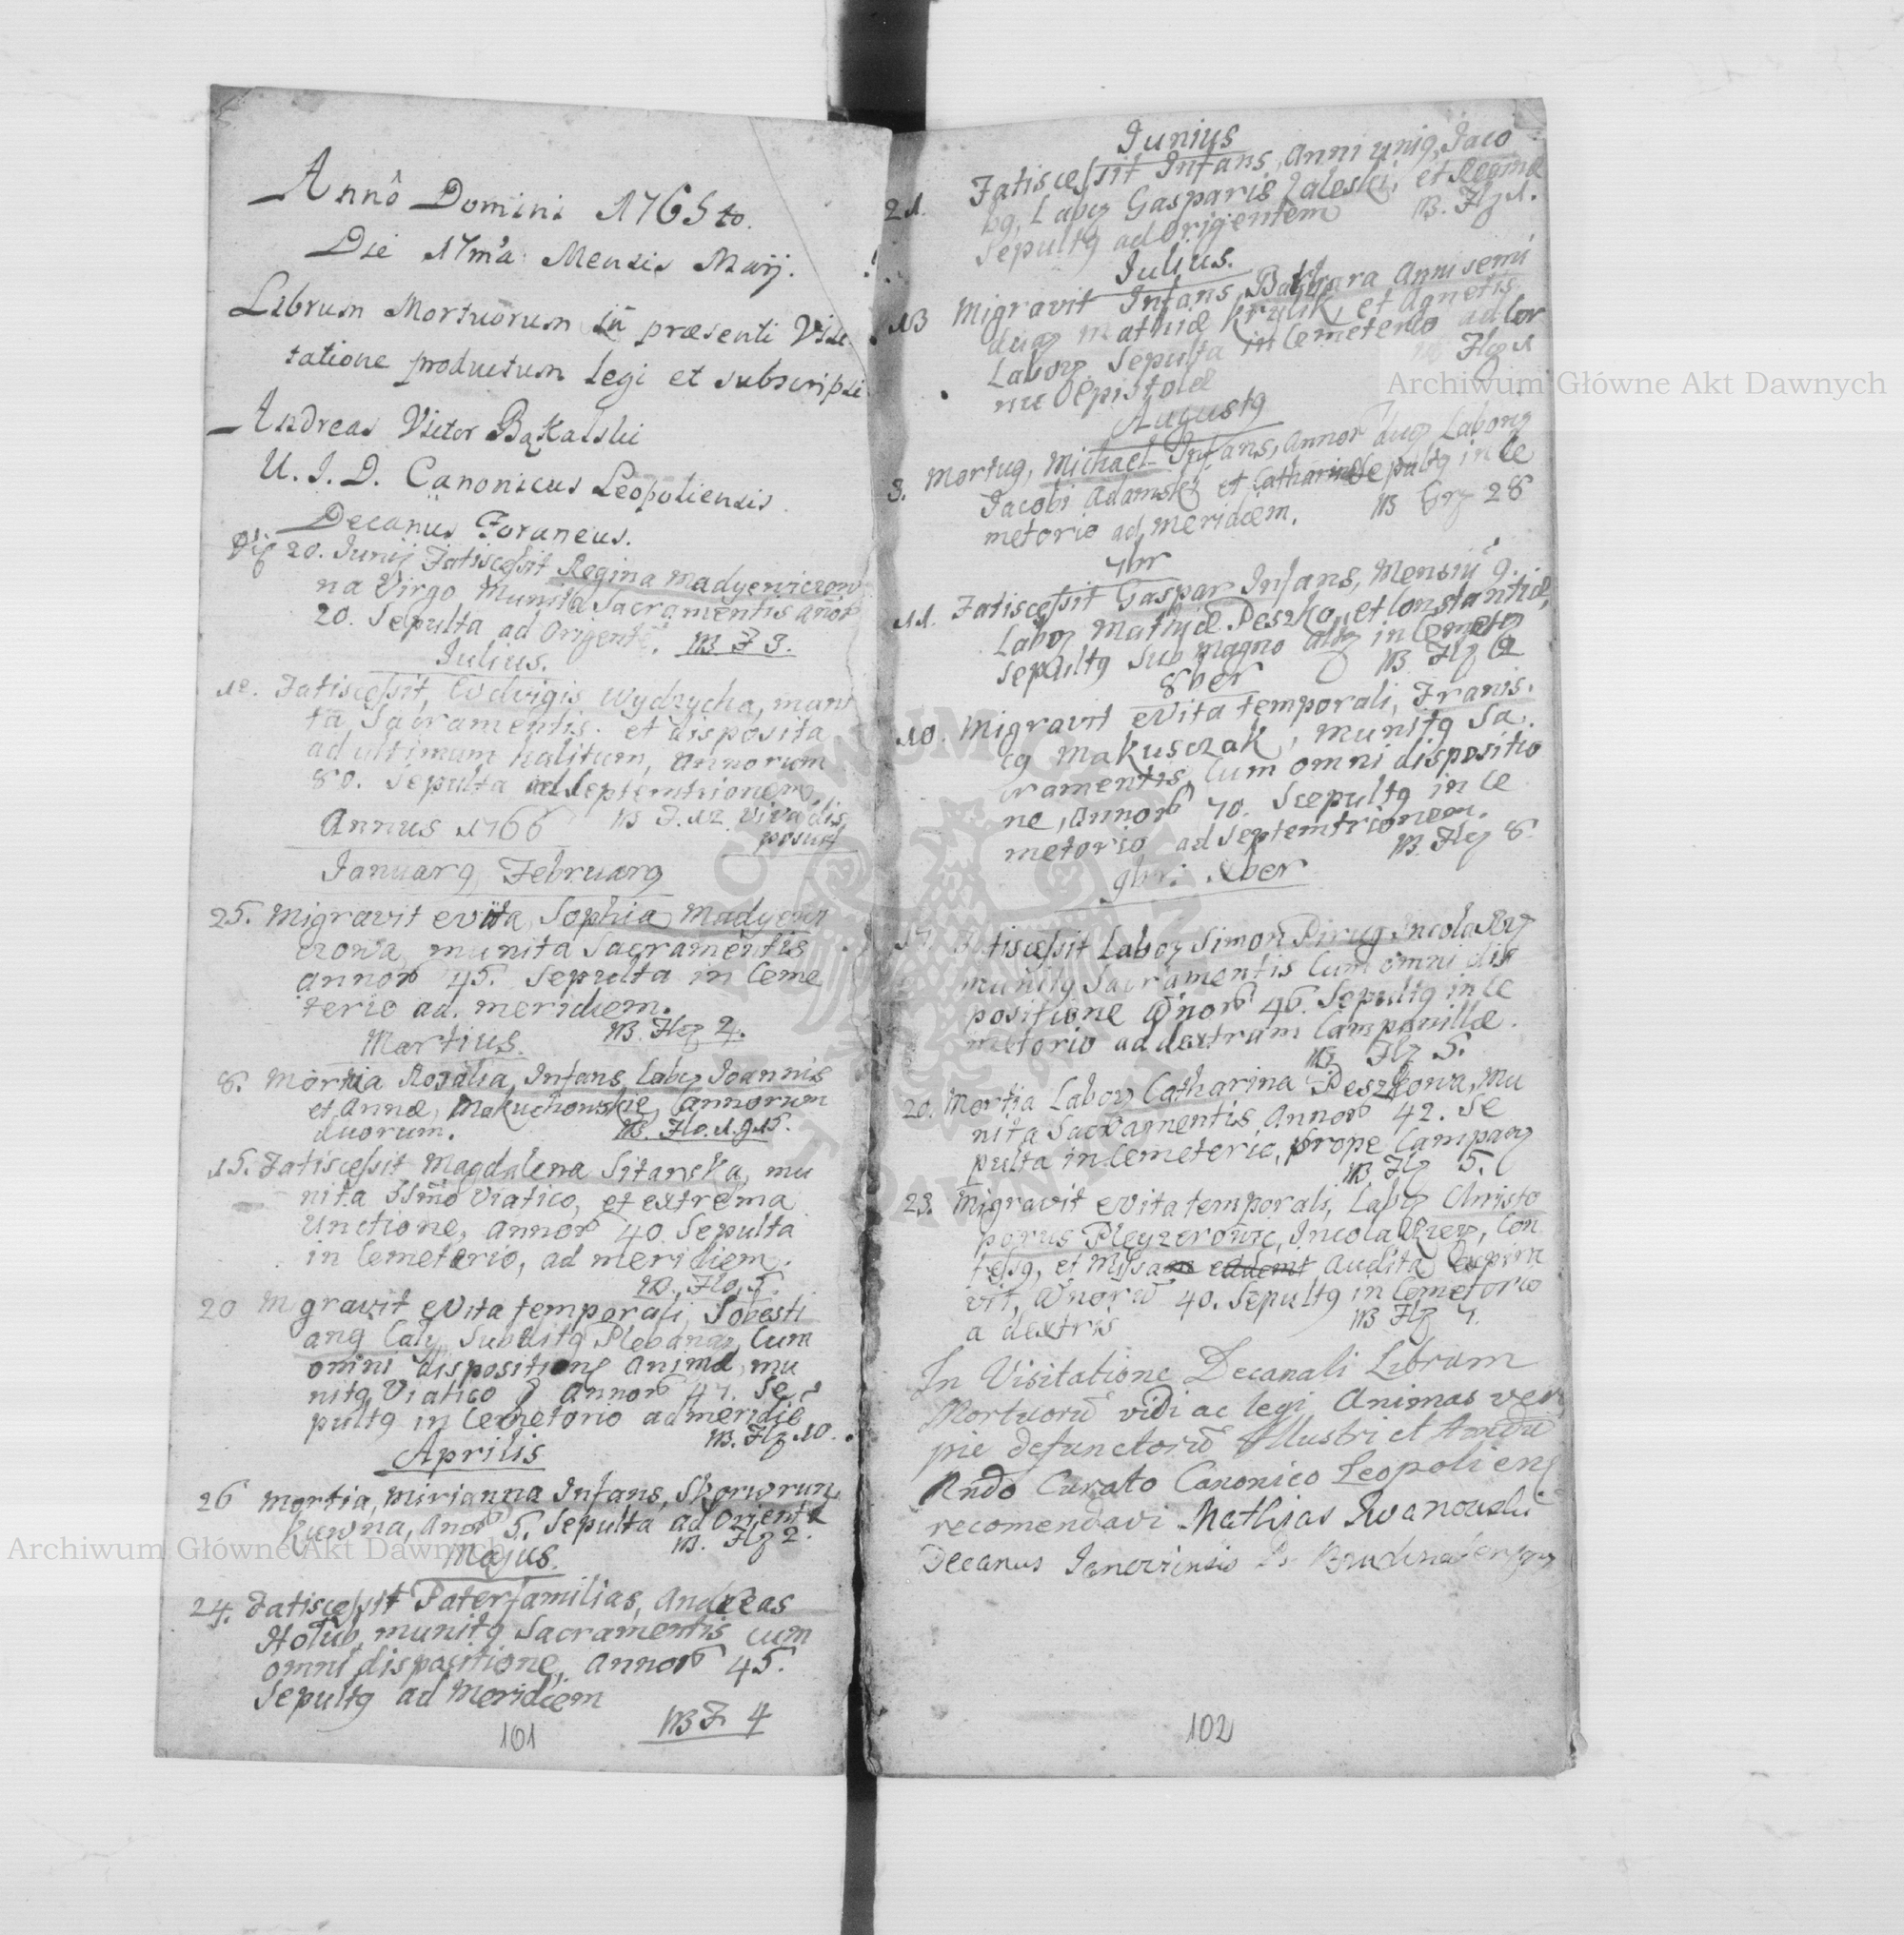 Annô Domini 1765to.
Die 17mâ Mensis Maij.
Librum Mortuorum in præsenti Visi
tatione productum legi et subscripsi
Andreas Victor Bąkalski
U. I. D. Canonicus Leopoliensis
Decanus Foraneus.
20. Junij Fatiscessit Regina Madyewiczow
na Virgo Munita Sacramentis añor
20. Sepulta ad Origentē. NB F 3.
Julius.
12. Fatiscessit, Edvigis Wydzycha, muni
ta Sacramentis. et disposita
ad ultimum halitum, Annorum
80. Sepulta ad Septemtrionem
Annus 1766 NB F. 12. viva dis
posuit
Januarq Februarq
25. Migravit evita Sophia Madyewi
czowa, munita Sacramentis
annor 45. Sepulta in Ceme
terio ad. meridiem.
Martius. NB. Flz 2.
8. Mortua Rosalia Infans, Labz Joannis
et Annæ, Makuchowskie, annorum
duorum. NB. Flo. 1. g 15.
15. Fatiscessit Magdalena Sitarska, mu
nita SSmo Viatico, et extrema
Unctione, annor 40. Sepulta
in Cemeterio, ad meridiem.
NB. Flo, 5.
20 Migravit evita temporali, Sobesti
anq Caly, Subditq Plebanaz, Cum
omni dispositione animæ, mu
nitq Viatico annor 47. Se
pultq in Cemetorio ad meridiē
Aprilis NB. Flz 10.
26 Mortua, Mirianna Infans, Skowrun
kuwna, Anor 5. Sepulta ad Orientē
Majus. NB. Flz 2.
24. Fatiscessit Paterfamilias, Andreas
Hołub, munitq Sacramentis cum
omni dispositione, annor 45.
Sepultq ad Meridiem
NB F. 4
101
Junius
21. Fatiscessit Infans, Anni uniq, Jaco
bq, Laboz Gasparis Zaleski, et Reginæ
Sepultq ad Origentem NB. Flz 1.
Julius.
13 Migravit Infans Barbara Anni semi
duaz Mathiæ Krulik, et Agnetis
Laboz Sepulta in Cemeterio ad Cor
nu Epistolæ NB Flz 1
Augustq
3. Mortuq, Michael Infans, Annor duoz Laboriz
Jacobi Adamski et Catharinæ Sepultq in Ce
metorio ad meridiem. NB Grz 28
7br
11. Fatiscessit Gaspar Infans, Mensiū 9.
Laboz Mathiæ Peszko, et Constantiæ,
Sepultq Sub magno altz in Cemetz
8ber NB Flz 2
10. Migravit eVita temporali, Francis.
cq Makusczak, munitq Sa.
cramentis, Cum omni dispositio
ne, Annor 70. Scepultq in Ce
metorio ad Septemtrionem.
9br: Xber NB. Flz 8.
17. Fatiscessit Laboz Simon Pirug Incola
munitq Sacramentis Cum omni dis
positione Anor 46. Sepultq in Ce
metorio ad dextram Campanillæ.
NB Flz 5.
20. Mortua Laboz Catharina Peszkowa, Mu
nita Sacramentis Annor 42. Se
pulta in Cemeterio, prope Campaz
NB Flz 5.
23. Migravit eVita temporali, Laboz Christo
porus Incola, Con
fessq, et Missa audita Expira
vit, Anorū 40. Sepultq in Cemetorio
a dextris NB Flz 7.
In Visitatione Decanali Librum
Mortuorū vidi ac legi Animas vero
pie defunctorū Illustri et Amdū
Rndo Curato Canonico Leopoliens
recomendavi Mathias Iwanowski
Decanus Janoviensis
102
Archiwum Główne Akt Dawnych
Archiwum Główne Akt Dawnych